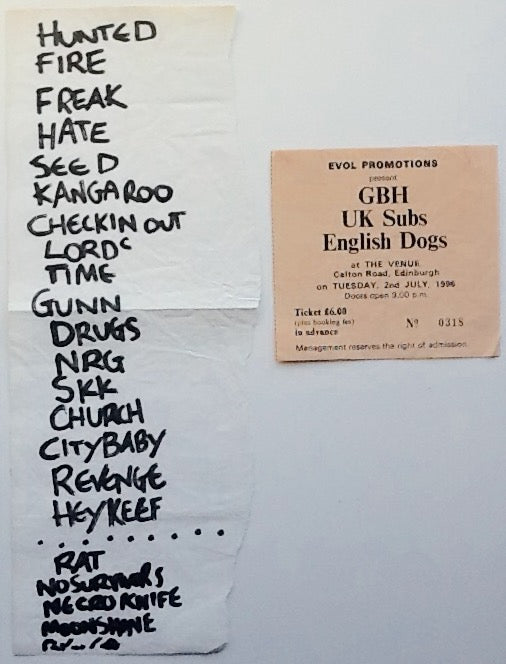 HUNTED
FIRE
FREAK
HATE
SEED
KANGAROO
CHECKIN OUT
LORDS
TIME
GUNN
DRUGS
NRG
SKK
CHURCH
CITYBABY
REVENGE
HEYKEEF
. . . . . . . . .
RAT
NO SURVIVORS
NECRO KNIFE
MOONSHINE
EVOL PROMOTIONS
present
GBH
UK Subs
English Dogs
at THE VENUE
Calton Road, Edinburgh
on TUESDAY, 2nd JULY, 1996
Doors open 9.00 p.m.
Ticket £6.00
(plus booking fee)
in advance
Nº 0318
Management reserves the right of admission